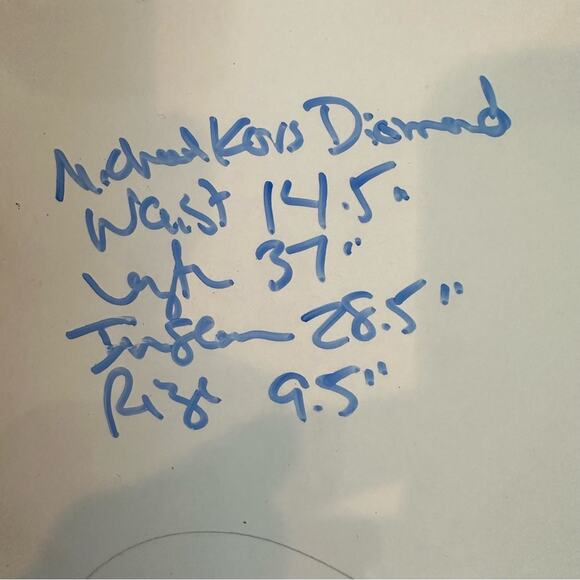 Michael Kors Diamond
Waist 14.5"
Length 37"
Inseam 28.5"
Rise 9.5"